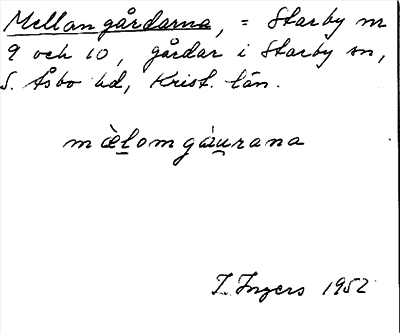 Mellangårdarna, = Starby nr
9 och 10, gårdar i Starby sn,
S. Åsbo hd, Krist. län.
mæ̀lomgáurana
I. Ingers 1952